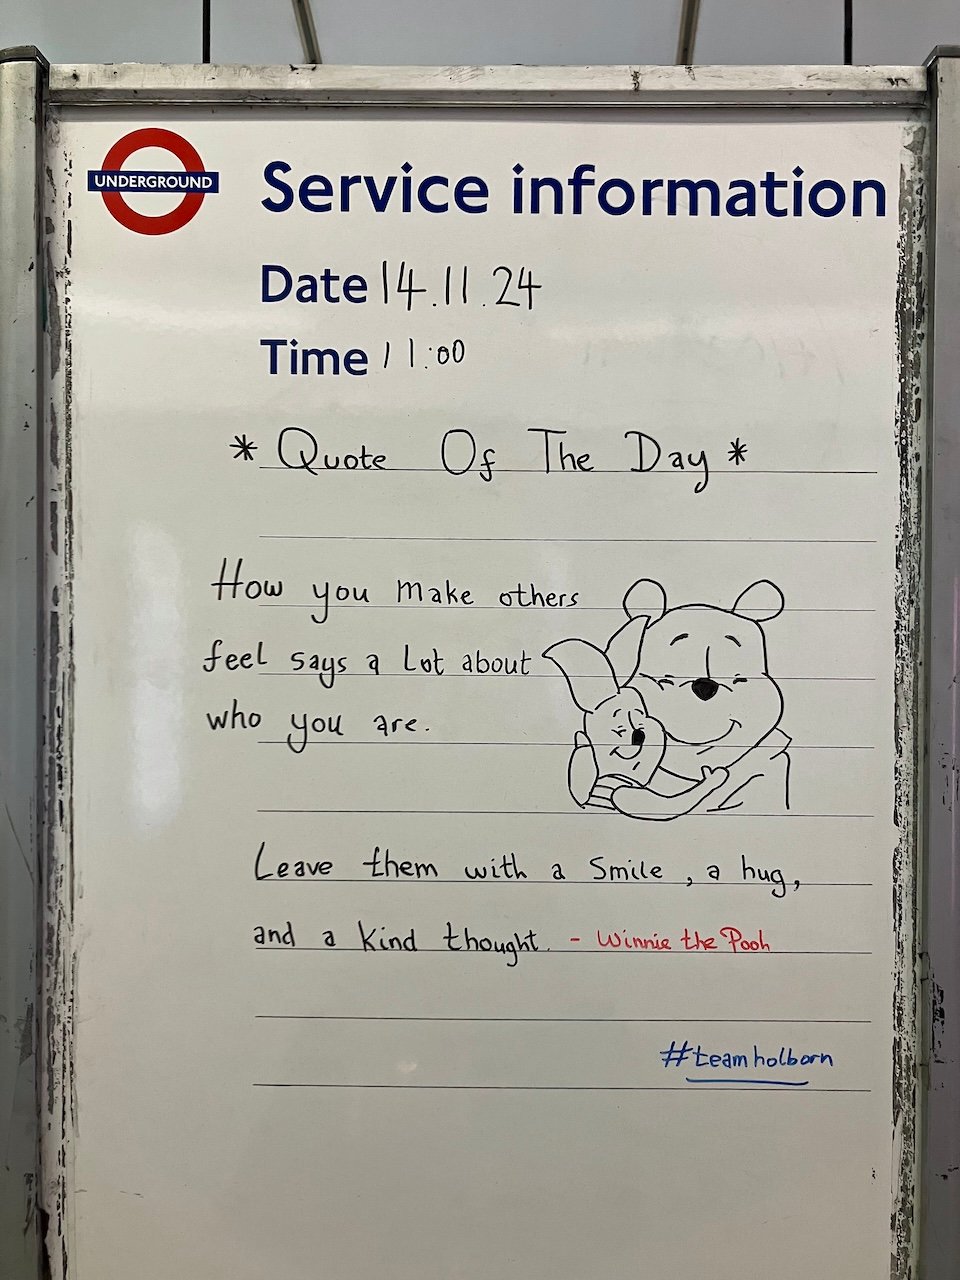 UNDERGROUND
Service information
Date 14.11.24
Time 11:00
* Quote Of The Day *
How you make others
feel says a lot about
who you are.
Leave them with a smile, a hug,
and a kind thought. - Winnie the Pooh
#teamholborn